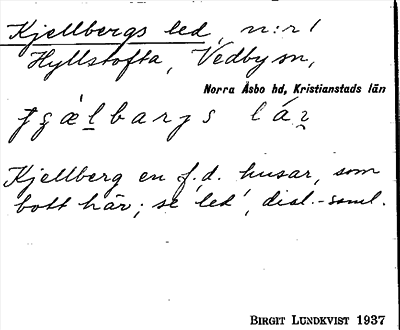 Kjellbergs led, n:r 1
Hyllstofta, Vedby sn,
Norra Åsbo hd, Kristianstads län
Kjellberg en f.d. husar, som
bott här; se 'led', dial.-saml.
BIRGIT LUNDKVIST 1937